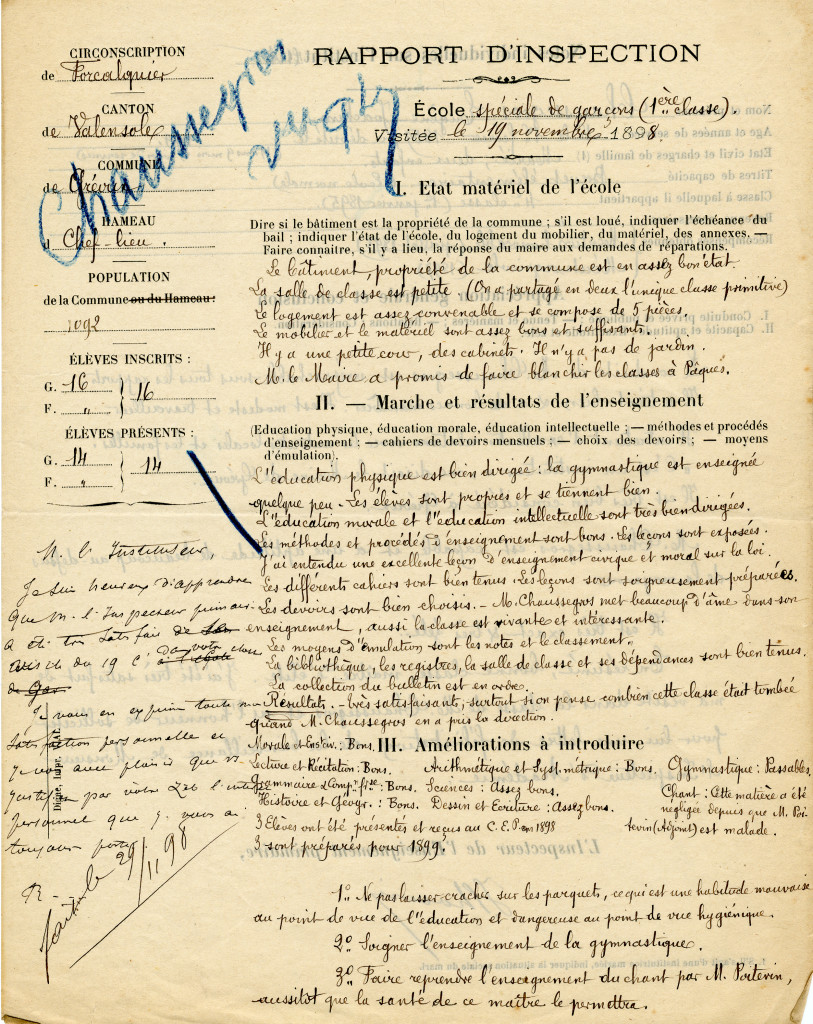 RAPPORT D'INSPECTION
CIRCONSCRIPTION
de Forcalquier
CANTON
de Valensole
COMMUNE
de Gréoux
HAMEAU
d Chef-lieu.
POPULATION
de la Commune ou du Hameau:
1092
ÉLÈVES INSCRITS :
G. 16
F. „
16
ÉLÈVES PRÉSENTS :
G. 14
F. „
14
Chaussegros
École spéciale de garçons (1ère classe).
Visitée le 19 novembre 1898.
I. Etat matériel de l'école
Dire si le bâtiment est la propriété de la commune ; s'il est loué, indiquer l'échéance du
bail ; indiquer l'état de l'école, du logement du mobilier, du matériel, des annexes. —
Faire connaitre, s'il y a lieu, la réponse du maire aux demandes de réparations.
Le bâtiment, propriété de la commune est en assez bon état.
La salle de classe est petite (On a partagé en deux l'unique classe primitive)
Le logement est assez convenable et se compose de 5 pièces.
Le mobilier et le matériel sont assez bons et suffisants.
Il y a une petite cour, des cabinets. Il n'y a pas de jardin.
M. le Maire a promis de faire blanchir les classes à Pâques.
II. — Marche et résultats de l'enseignement
(Education physique, éducation morale, éducation intellectuelle ; — méthodes et procédés
d'enseignement ; — cahiers de devoirs mensuels ; — choix des devoirs ; — moyens
d'émulation).
L'éducation physique est bien dirigée : la gymnastique est enseignée
quelque peu. Les élèves sont propres et se tiennent bien.
L'éducation morale et l'éducation intellectuelle sont très bien dirigées.
Les méthodes et procédés d'enseignement sont bons. Les leçons sont exposées.
J'ai entendu une excellente leçon d'enseignement civique et moral sur la loi.
Les différents cahiers sont bien tenus. Les leçons sont soigneusement préparées.
Les devoirs sont bien choisis. — M. Chaussegros met beaucoup d'âme dans son
enseignement, aussi la classe est vivante et intéressante.
Les moyens d'émulation sont les notes et le classement.
La bibliothèque, les registres, la salle de classe et ses dépendances sont bien tenus.
La collection du bulletin est en ordre.
Résultats. — très satisfaisants, surtout si on pense combien cette classe était tombée
quand M. Chaussegros en a pris la direction.
Morale et Ens. civ. : Bons.
III. Améliorations à introduire
Lecture et Récitation : Bons. Arithmétique et Syst. métrique : Bons. Gymnastique : Passables.
Grammaire et Compon fse : Bons. Sciences : Assez bons. Chant : Cette matière a été
Histoire et Géogr. : Bons. Dessin et Ecriture : Assez bons. négligée depuis que M. Poi-
tevin (Adjoint) est malade.
3 Elèves ont été présentés et reçus au C. E. P. en 1898
3 sont préparés pour 1899.
1º. Ne pas laisser cracher sur les parquets, ce qui est une habitude mauvaise
au point de vue de l'éducation et dangereuse au point de vue hygiénique.
2º. Soigner l'enseignement de la gymnastique.
3º. Faire reprendre l'enseignement du chant par M. Poitevin,
aussitôt que la santé de ce maître le permettra.
M. l'Instituteur,
Je suis heureux d'apprendre
que M. l'Inspecteur primaire
a été très satisfait de
du 19 c. de votre classe
Je vous en exprime toute ma
satisfaction personnelle et
je vois avec plaisir que v.
justifiez par votre zèle l'intérêt
personnel que je vous ai
toujours porté
R.
fait le 29/11 98
Digne, Impr.